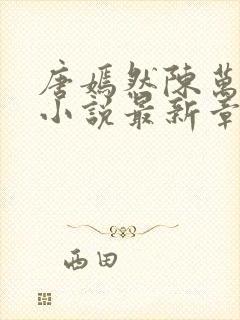 唐嫣然陈萬
小说最新章
西田